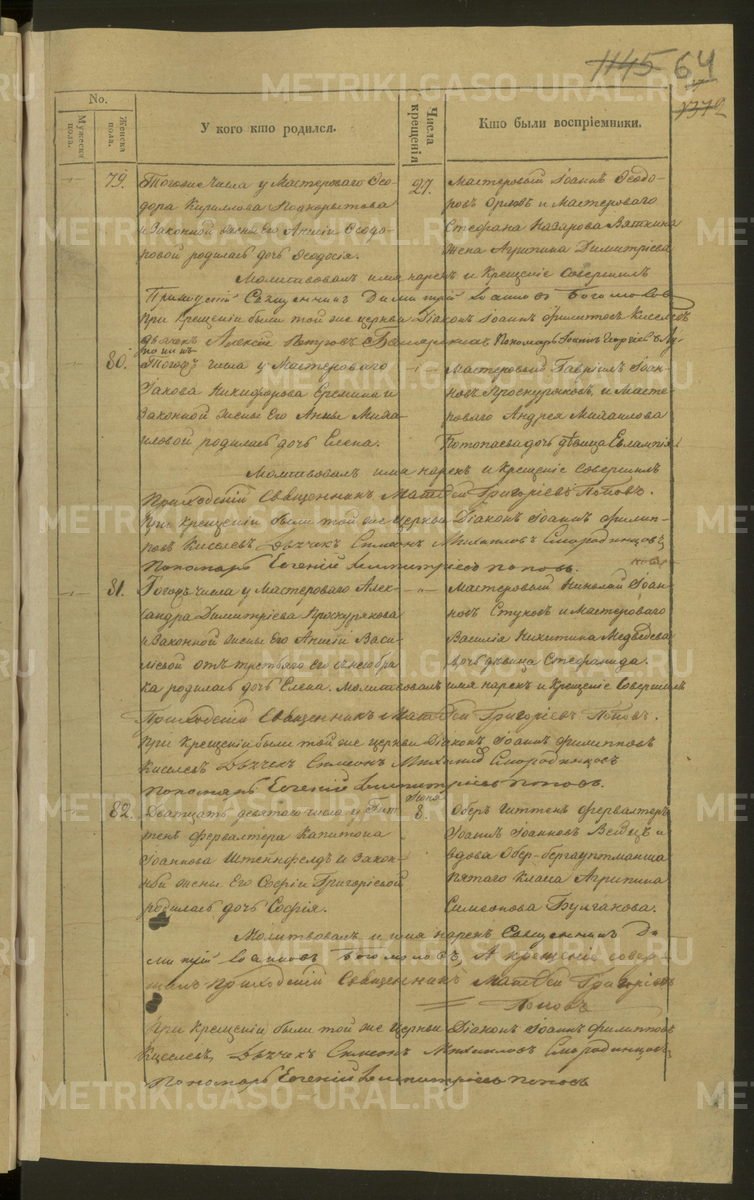 1145 64
No.
Мужеска пола.
Женска пола.
У кого кто родился.
Числа крещенія
Кто были воспріемники.
79. Тогоже числа у Мастероваго Ѳео-
дора Кириллова Подкорытова
и Законной жены его Анисіи Ѳеодо-
ровой родилась дочь Ѳеодосія.
27. Мастеровый Іоаннъ Ѳеодо-
ровъ Орловъ и Мастероваго
Стефана Назарова Вяткина
жена Агрипина Димитріева
Молитвовалъ имя нарекъ и Крещеніе Совершилъ
Священникъ Димитрій Іоанновъ Богомоловъ
При Крещеніи были той же церкви Діаконъ Іоаннъ Филиповъ Киселевъ
дьячекъ Алексій Пономарь Іоаннъ
80. Тогожъ числа у Мастероваго
Іакова Никифорова Еремина и
Законной жены Его Анны Миха-
иловой родилась дочь Елена.
Мастеровый Гавріилъ Іоан-
новъ Проскуряковъ, и Масте-
роваго Андрея Михаилова
Потопаева дочь дѣвица Евлампія.
Молитвовалъ имя нарекъ и Крещеніе Совершилъ
Приходскій Священникъ Матвей Григоріевъ Поповъ.
При Крещеніи были той же Церкви Діаконъ Іоаннъ Филип-
повъ Киселевъ Дьячекъ Симеонъ Михаиловъ Смородинцовъ,
Пономарь Евгеній Димитріевъ Поповъ.
81. Тогожъ числа у Мастероваго Алек-
сандра Димитріева Проскурякова
и Законной жены Его Анисіи Васи-
ліевой отъ третьяго Его с нею бра-
ка родилась дочь Елена. Молитвовалъ имя нарекъ и Крещеніе Совершилъ
Мастеровый Николай Іоан-
новъ Стуковъ и Мастероваго
Василія Никитина Медвѣдева
дочь дѣвица Стефанида.
Приходскій Священникъ Матвей Григоріевъ Поповъ.
При Крещеніи были той же церкви Діаконъ Іоаннъ Филипповъ
Киселевъ Дьячекъ Симеонъ Михаиловъ Смородинцовъ
Пономарь Евгеній Димитріевъ Поповъ.
82. Дватцать девятаго числа у Гит-
тенъ фервалтера Капитона
Іоаннова Штейнфельдъ и Закон-
ной жены Его Софіи Григоріевой
родилась дочь Софія.
8. Оберъ Гиттенъ фервалтеръ
Іоаннъ Іоанновъ Вейцъ и
вдова Обер-бергауптманша
пятаго класа Агрипина
Симеонова Булгакова.
Молитвовалъ и имя нарекъ Священникъ Ди-
митрій Іоанновъ Богомоловъ, А крещеніе совер-
шилъ Приходскій Священникъ Матвей Григоріевъ
Поповъ
При Крещеніи были той же Церкви Діаконъ Іоаннъ Филипповъ
Киселевъ, Дьячекъ Симеонъ Михаиловъ Смородинцовъ
Пономарь Евгеній Димитріевъ Поповъ
METRIKI.GASO-URAL.RU